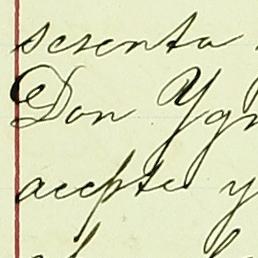 sesenta
Don Ygn
acepta y